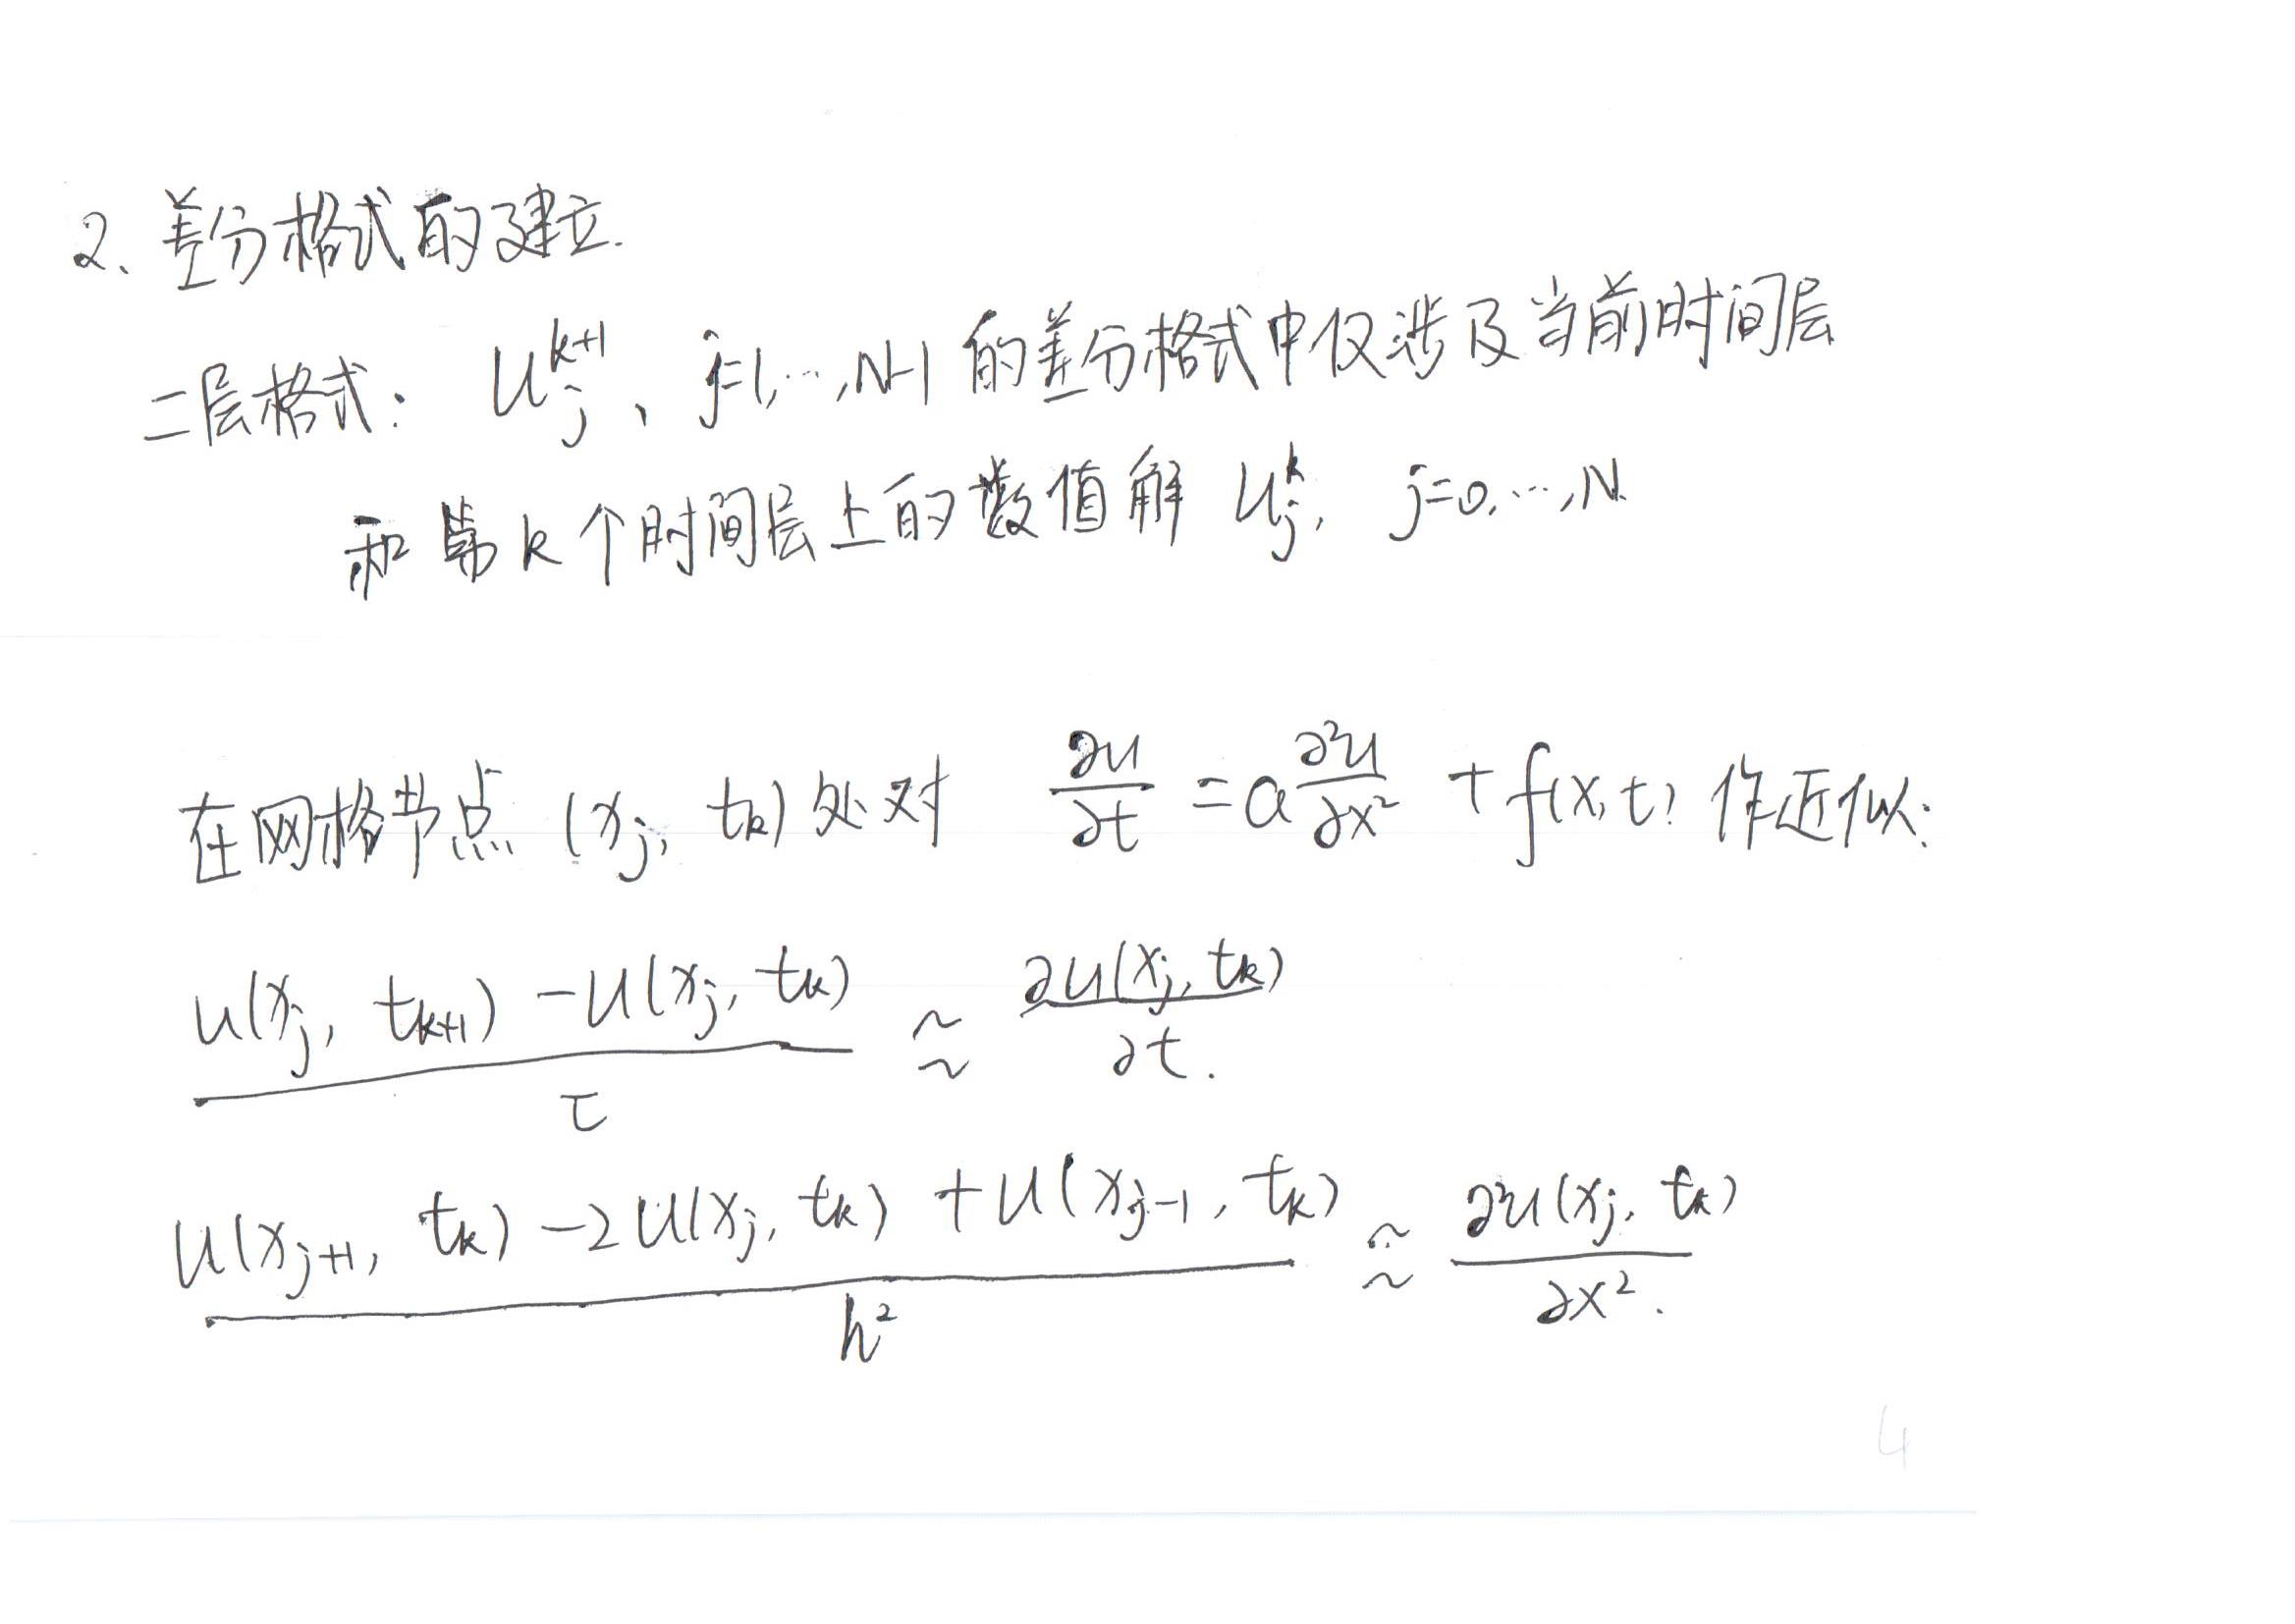 2、差分格式的建立.
二层格式: $u_j^{k+1}$、j=1,…,N-1 的差分格式中仅涉及当前时间层
和第k个时间层上的数值解 $u_j^k$, j=0,…,N.
在网格节点 $(x_j, t_k)$ 处对 $\frac{\partial u}{\partial t} = a\frac{\partial^2 u}{\partial x^2} + f(x,t)$ 作近似:
$\frac{u(x_j, t_{k+1}) - u(x_j, t_k)}{\tau} \approx \frac{\partial u(x_j, t_k)}{\partial t}.$
$\frac{u(x_{j+1}, t_k) - 2u(x_j, t_k) + u(x_{j-1}, t_k)}{h^2} \approx \frac{\partial^2 u(x_j, t_k)}{\partial x^2}.$
4